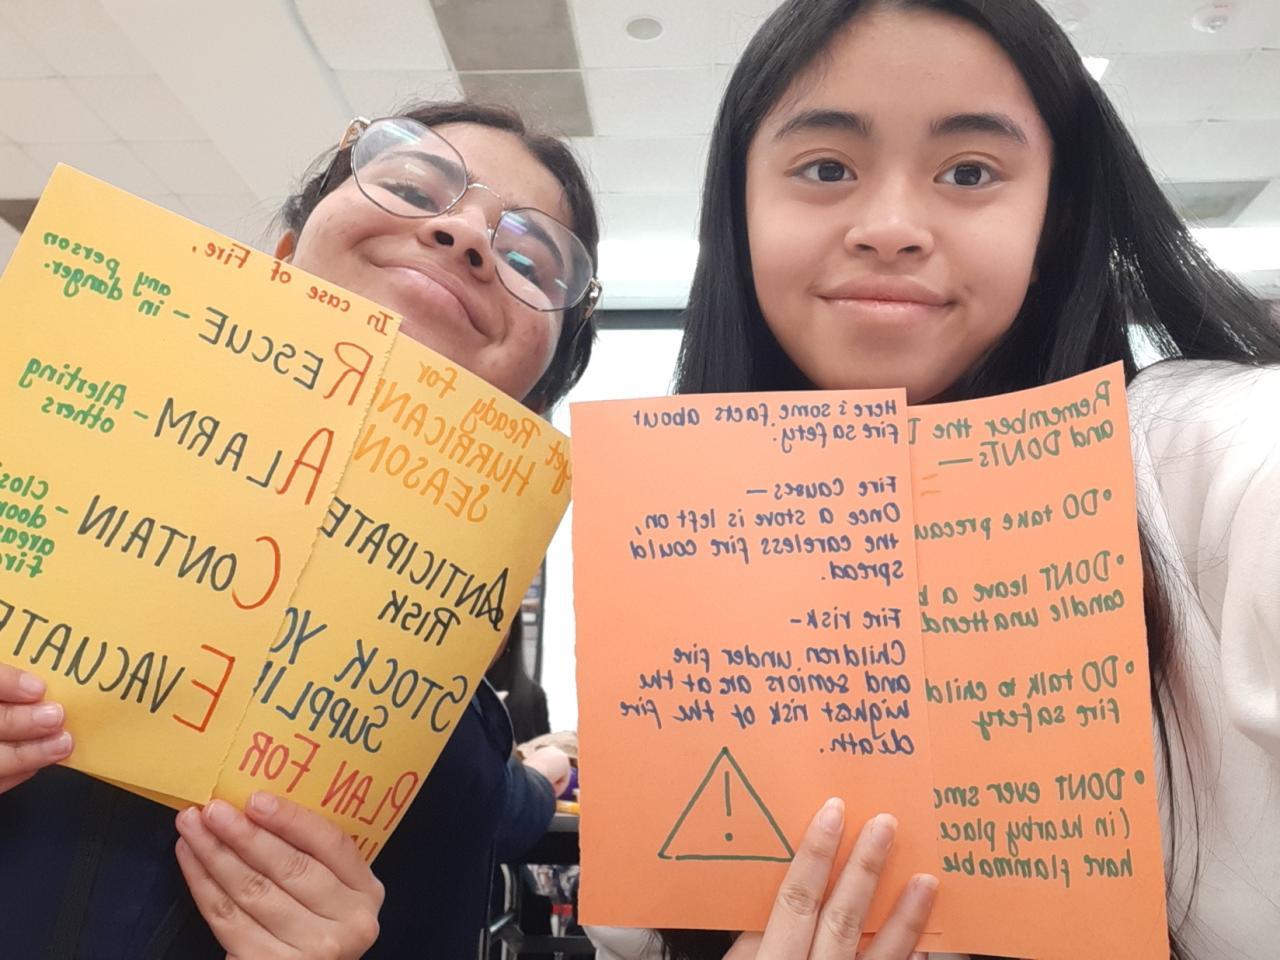 In case of Fire,
RESCUE - any person
in danger.
ALARM - Alerting
others
CONTAIN -
EVACUATE
Get Ready
For
HURRICAN
SEASON
ANTICIPATE
RISK
STOCK YO
SUPPLI
PLAN FOR
Here's some facts about
fire safety.
Fire Causes-
Once a stove is left on,
the careless fire could
spread.
Fire risk-
Children under five
and seniors are at the
highest risk of the fire
death.
!
Remember the D
and DONTs
• DO take precau
• DON'T leave a b
candle unattend
• DO talk to child
fire safety
• DONT ever smo
(in nearby place
have flammable